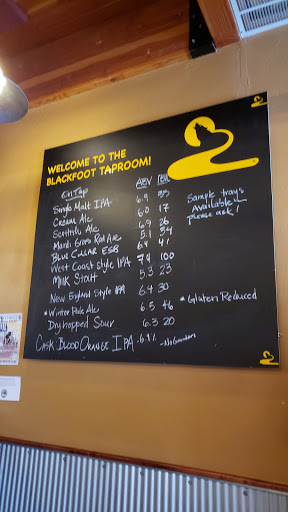 WELCOME TO THE
BLACKFOOT TAPROOM!
On Tap ABV IBU
Single Malt IPA 6.9 35
Cream Ale 6.0 17
Scottish Ale 6.9 26
Mardi Gras Red Ale 5.1 54
Blue Collar ESB 6.4 41
West Coast Style IPA 7.4 100
Milk Stout 5.3 23
New England Style IPA 6.4 30
*Winter Pale Ale 6.5 46
Dry hopped Sour 6.3 20
CASK: BLOOD ORANGE IPA - 6.9% - No Growlers
Sample trays
Available
please ask!
* Gluten Reduced